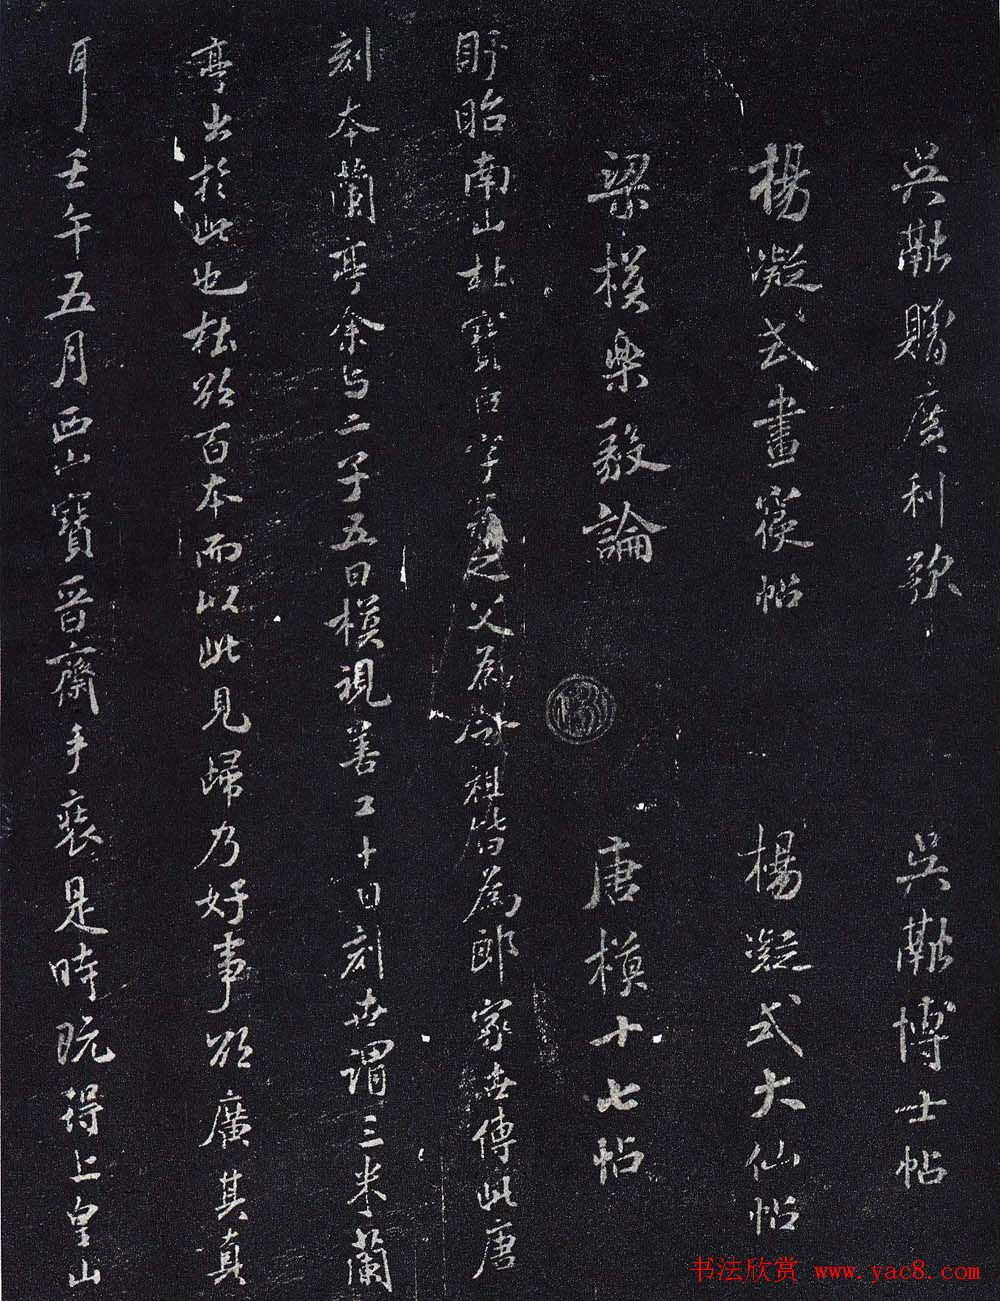 吳融贈廣利歌 吳融博士帖
楊凝式畫寢帖 楊凝式大仙帖
梁模樂毅論 唐模十七帖
盱眙南山杜寶臣字之父爲祖皆爲郎家世傳此唐
刻本蘭亭余与二子五日模視善工十日刻世謂三米蘭
亭出於此也杜欲百本而以此見歸乃好事欲廣其真
耳壬午五月西山寶晉齋手裝是時玩得上皇山
书法欣赏 www.yac8.com